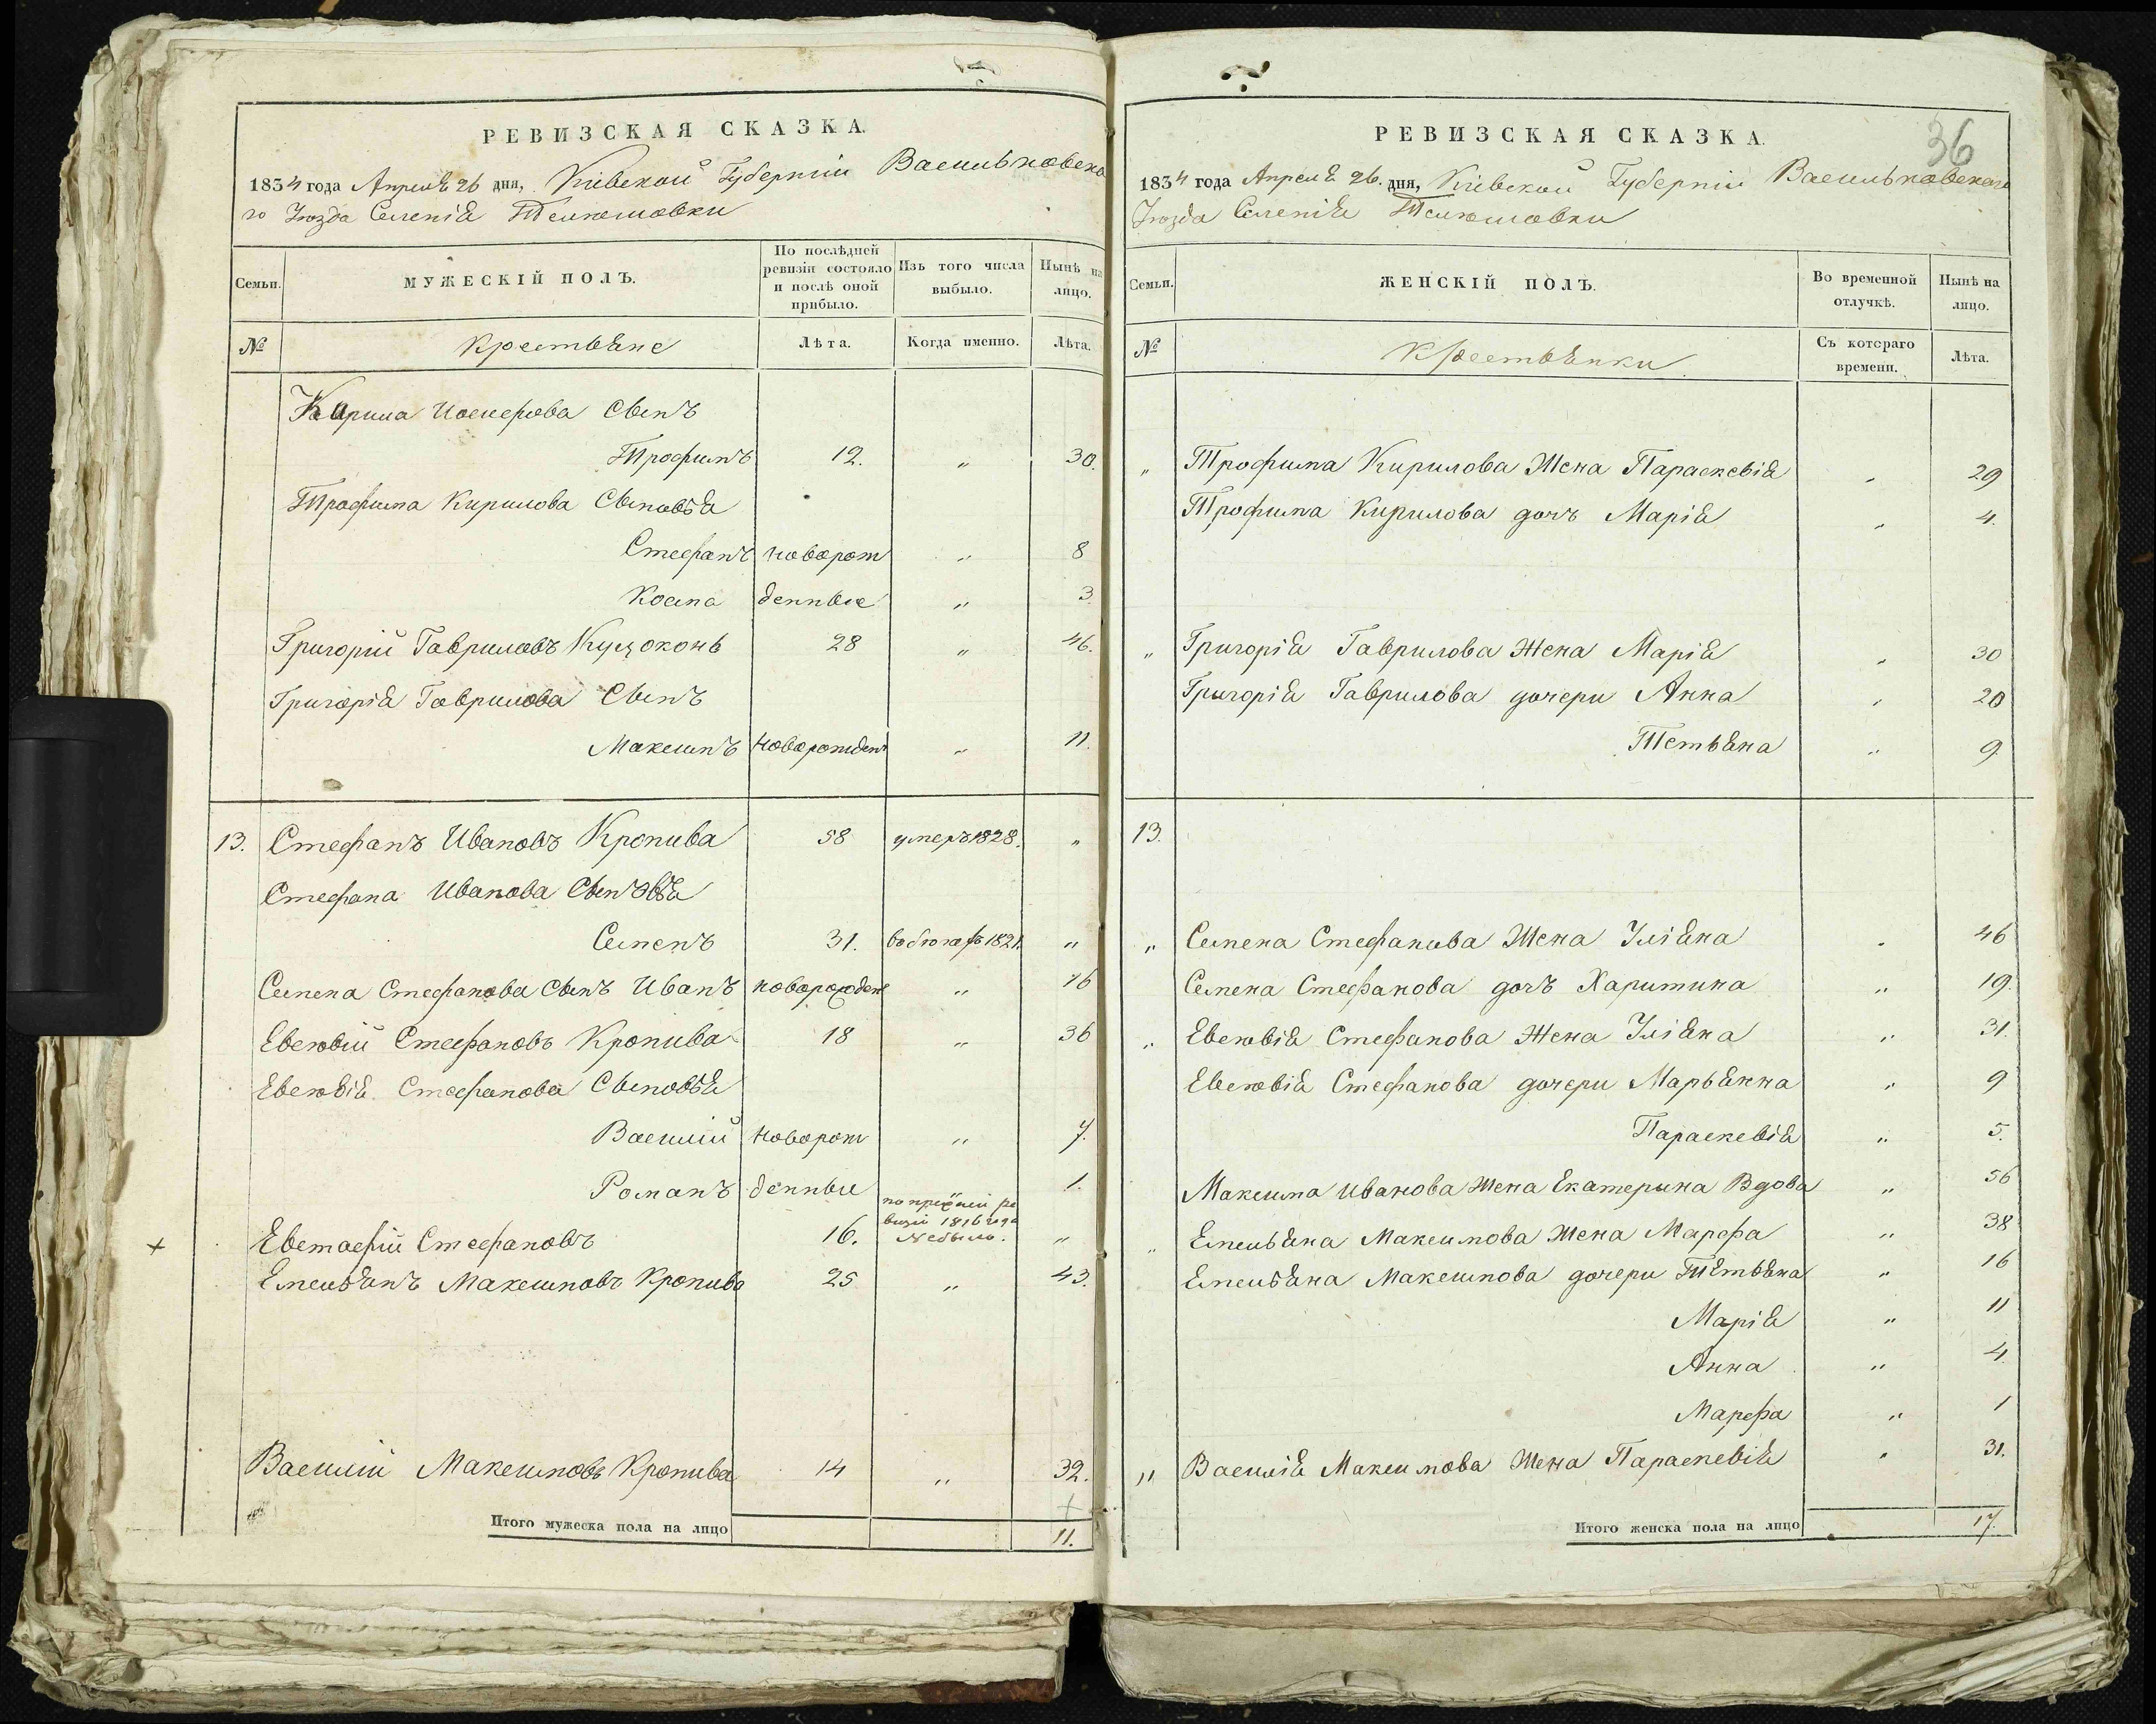 РЕВИЗСКАЯ СКАЗКА.
1834 года Апреля 26 дня, Кіевской Губерніи Васильковска
го Уѣзда Селенія
Семьи.
МУЖЕСКІЙ ПОЛЪ.
По послѣдней ревизіи состояло и послѣ оной прибыло.
Изъ того числа выбыло.
Нынѣ на лицо.
№
Крестьяне
Лѣта.
Когда именно.
Лѣта.
Кирила Иосифова Сынъ
Трофимъ 12. „ 30.
Трофима Кирилова Сыновья
Стефанъ новорож „ 8
Косма денные „ 3
Григорій Гавриловъ Куцоконь 28 „ 46.
Григорія Гаврилова Сынъ
Максимъ новорожден „ 11.
13. Стефанъ Ивановъ Кропива 58 умеръ 1828. „
Стефана Иванова Сыновья
Семенъ 31. в бегах 1821. „
Семена Стефанова Сынъ Иванъ новорожден „ 16
Евсювій Стефановъ Кропива 18 „ 36
Евсювія Стефанова Сыновья
Василій новорож „ 7.
Романъ денные 1.
+ Евстафій Стефановъ 16. по прежней ре
визіи 1816 года
небыло. „
Емельянъ Максимовъ Кропива 25 „ 43.
Василій Максимовъ Кропива 14 „ 32.
+
Итого мужеска пола на лицо 11.
РЕВИЗСКАЯ СКАЗКА.
36
1834 года Апреля 26. дня, Кіевской Губерніи Васильковскаго
Уѣзда Селенія
Семьи.
ЖЕНСКІЙ ПОЛЪ.
Во временной отлучкѣ.
Нынѣ на лицо.
№
Крестьянки
Съ котораго времени.
Лѣта.
„ Трофима Кирилова Жена Параскевія „ 29
Трофима Кирилова дочь Марія „ 4.
„ Григорія Гаврилова Жена Марія „ 30
Григорія Гаврилова дочери Анна „ 20
Тетьяна „ 9.
13.
„ Семена Стефанова Жена Уліяна „ 46
Семена Стефанова дочъ Харитина „ 19.
„ Евсювія Стефанова Жена Уліяна „ 31.
Евсювія Стефанова дочери Марьянна „ 9
Параскевія „ 5.
Максима Иванова Жена Екатерына Вдова „ 56
„ Емельяна Максимова Жена Марфа „ 38
Емельяна Максимова дочери Тетьяна „ 16
Марія „ 11
Анна „ 4.
Марфа „ 1
„ Василія Максимова Жена Параскевія „ 31.
Итого женска пола на лицо 17.